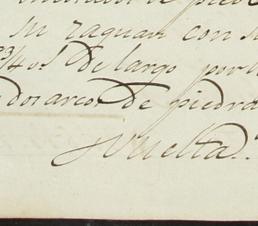 su zaguan con su
3/4 os de largo por
dos arcos de piedra
Vuelta.